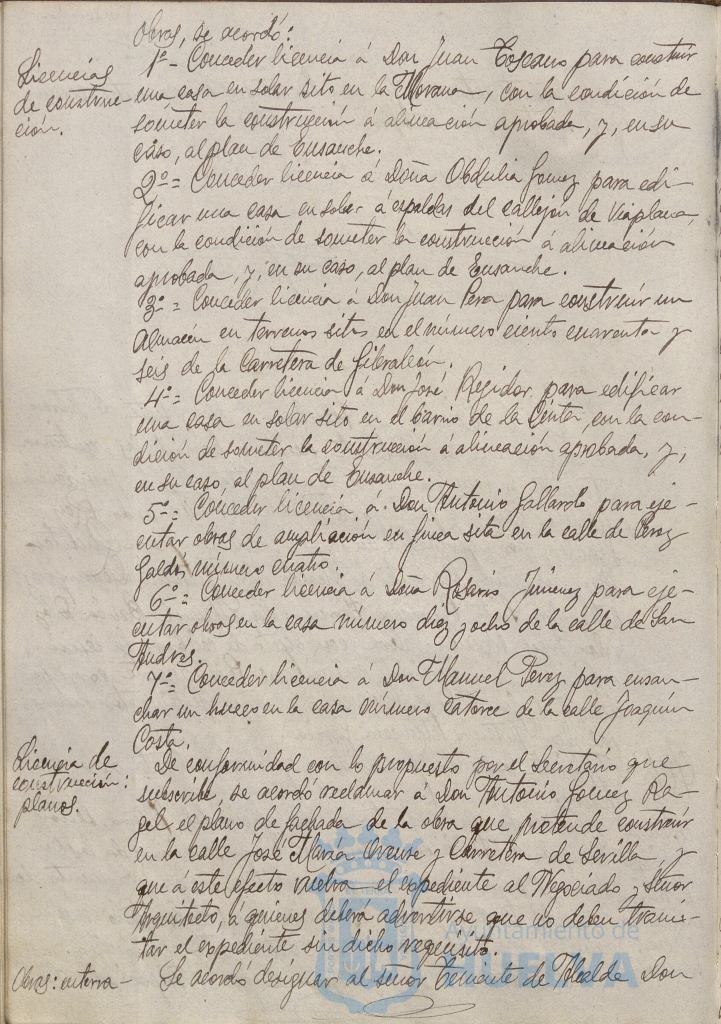 Obras, se acordó:
Licencias
de construc-
ción.
1º - Conceder licencia á Don Juan Toscano para construir
una casa en solar sito en la Morana, con la condición de
someter la construcción á alineación aprobada, y, en su
caso, al plan de Ensanche.
2º = Conceder licencia á Doña Obdulia Gomez para edi-
ficar una casa en solar á espaldas del callejon de Viaplana,
con la condición de someter la construcción á alineación
aprobada, y, en su caso, al plan de Ensanche.
3º = Conceder licencia á Don Juan Pera para construir un
Almacén en terrenos sitos en el número ciento cuarenta y
seis de la Carretera de Gibraleon.
4º = Conceder licencia á Don José Regidor para edificar
una casa en solar sito en el barrio de la Cinta, con la con-
dición de someter la construcción á alineación aprobada, y,
en su caso, al plan de Ensanche.
5º = Conceder licencia á Don Antonio Gallardo para eje-
cutar obras de ampliación en finca sita en la calle de Perez
Galdós, número cuatro.
6º = Conceder licencia á Doña Rosario Jimenez para eje-
cutar obras en la casa número diez y ocho de la calle de San
Andrés.
7º = Conceder licencia á Don Manuel Perez para ensan-
char un hueco en la casa número catorce de la calle Joaquin
Costa.
Licencia de
construcción:
planos.
De conformidad con lo propuesto por el Secretario que
subscribe, se acordó reclamar á Don Antonio Gomez Ra-
gel el plano de fachada de la obra que pretende construir
en la calle José María Orense y Carretera de Sevilla, y
que á este efecto vuelva el expediente al Negociado y Señor
Arquitecto, á quienes deberá advertirse que no deben trami-
tar el expediente sin dicho requisito.
Ayuntamiento de
HUELVA
Obras: enterra-
Se acordó designar al señor Teniente de Alcalde Don